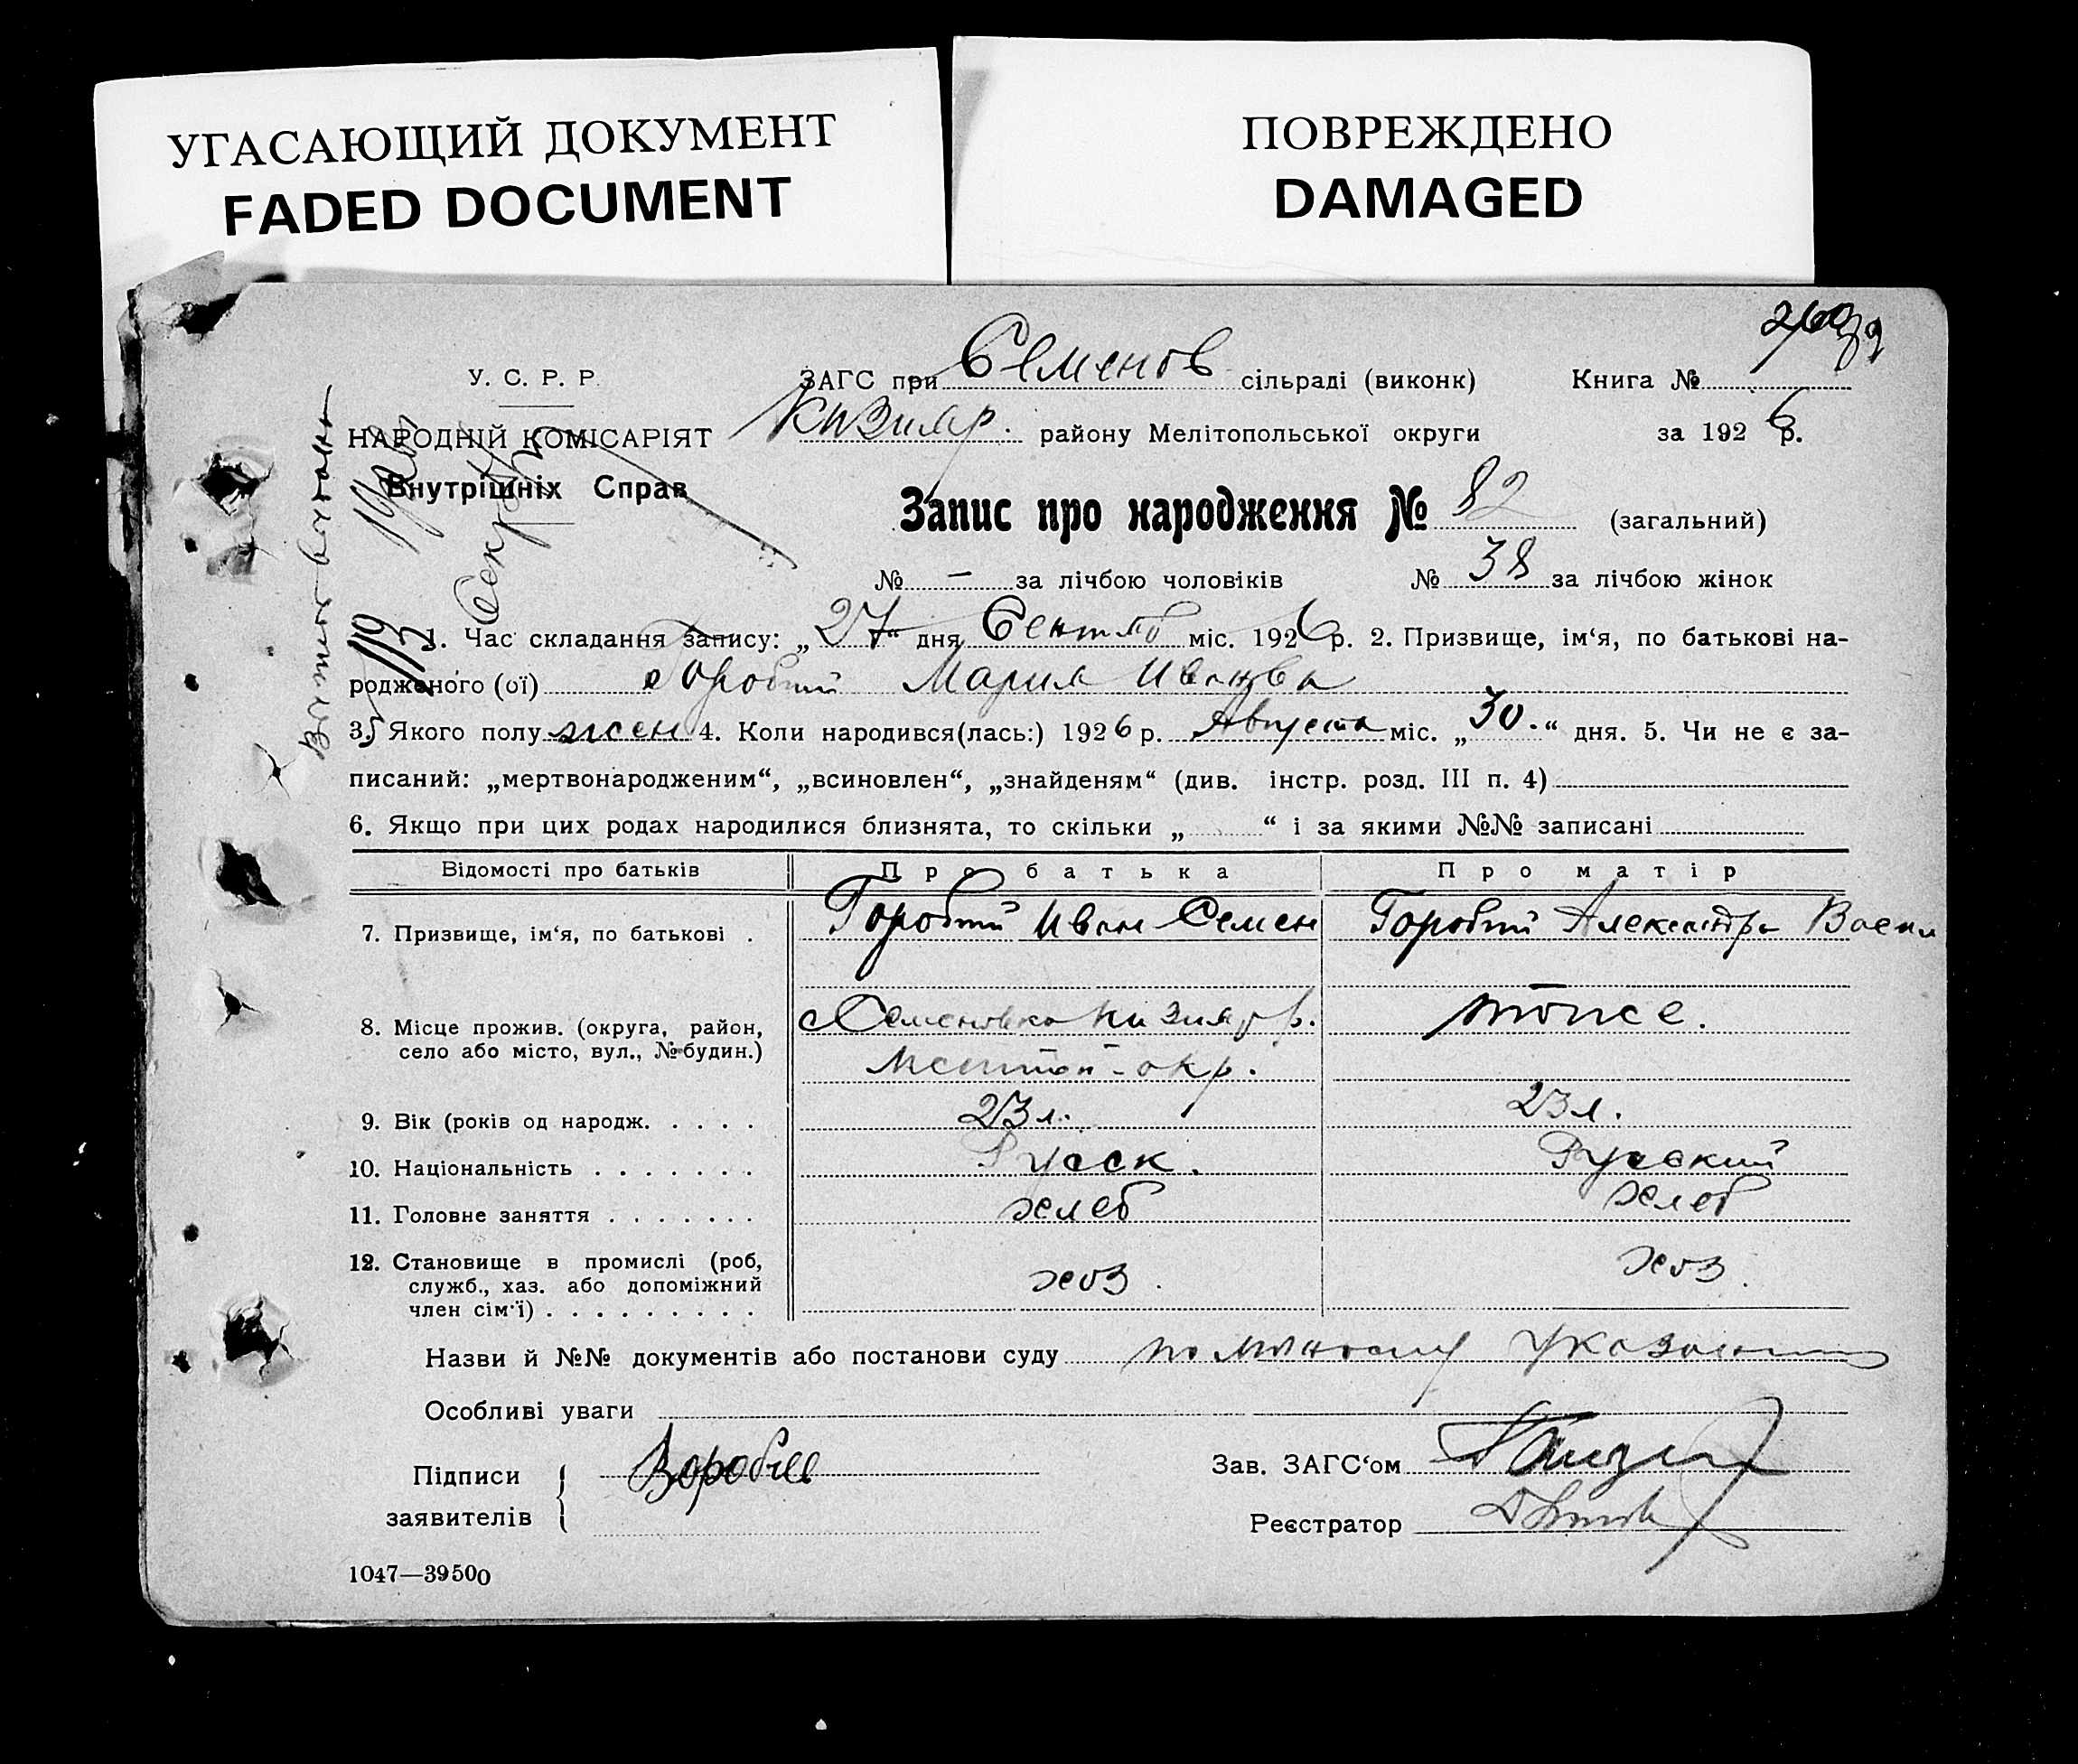 УГАСАЮЩИЙ ДОКУМЕНТ
FADED DOCUMENT
ПОВРЕЖДЕНО
DAMAGED
У. С. Р. Р.
НАРОДНІЙ КОМІСАРІЯТ
Внутрішніх Справ
ЗАГС при Семенов сільраді (виконк) Книга №
Кизияр. району Мелітопольської округи за 1926 р.
Запис про народження № 82 (загальний)
№ – за лічбою чоловіків № 38 за лічбою жінок
1. Час складання запису: „27“ дня Сентяб міс. 1926 р. 2. Призвище, ім‘я, по батькові на-
родженого (ої) Горобий Мария Иванова
3. Якого полу жен 4. Коли народився(лась:) 1926 р. Августа міс. „30.“ дня. 5. Чи не є за-
писаний: „мертвонародженим“, „всиновлен“, „знайденям“ (див. інстр. розд. III п. 4)
6. Якщо при цих родах народилися близнята, то скільки „ “ і за якими №№ записані
Відомості про батьків Про батька Про матір
7. Призвище, ім‘я, по батькові . Горобий Иван Семен Горобий Александра Васил
8. Місце прожив. (округа, район, село або місто, вул., № будин.) Семеновка Кизияр р. тоже.
Мелитоп-окр.
9. Вік (років од народж. . . . . 23 л. 23 л.
10. Національність . . . . . . . Русск. Руский
11. Головне заняття . . . . . . . хлеб хлеб
12. Становище в промислі (роб, служб., хаз. або допоміжний член сім‘ї) . . . . . . . . . хоз. хоз.
Назви й №№ документів або постанови суду по личному указанию
Особливі уваги
Підписи
заявителів
Зав. ЗАГС‘ом
Реєстратор
1047—39500